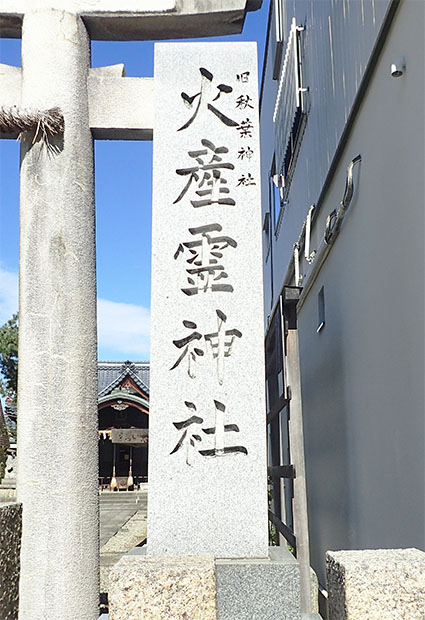 旧秋葉神社
火産霊神社